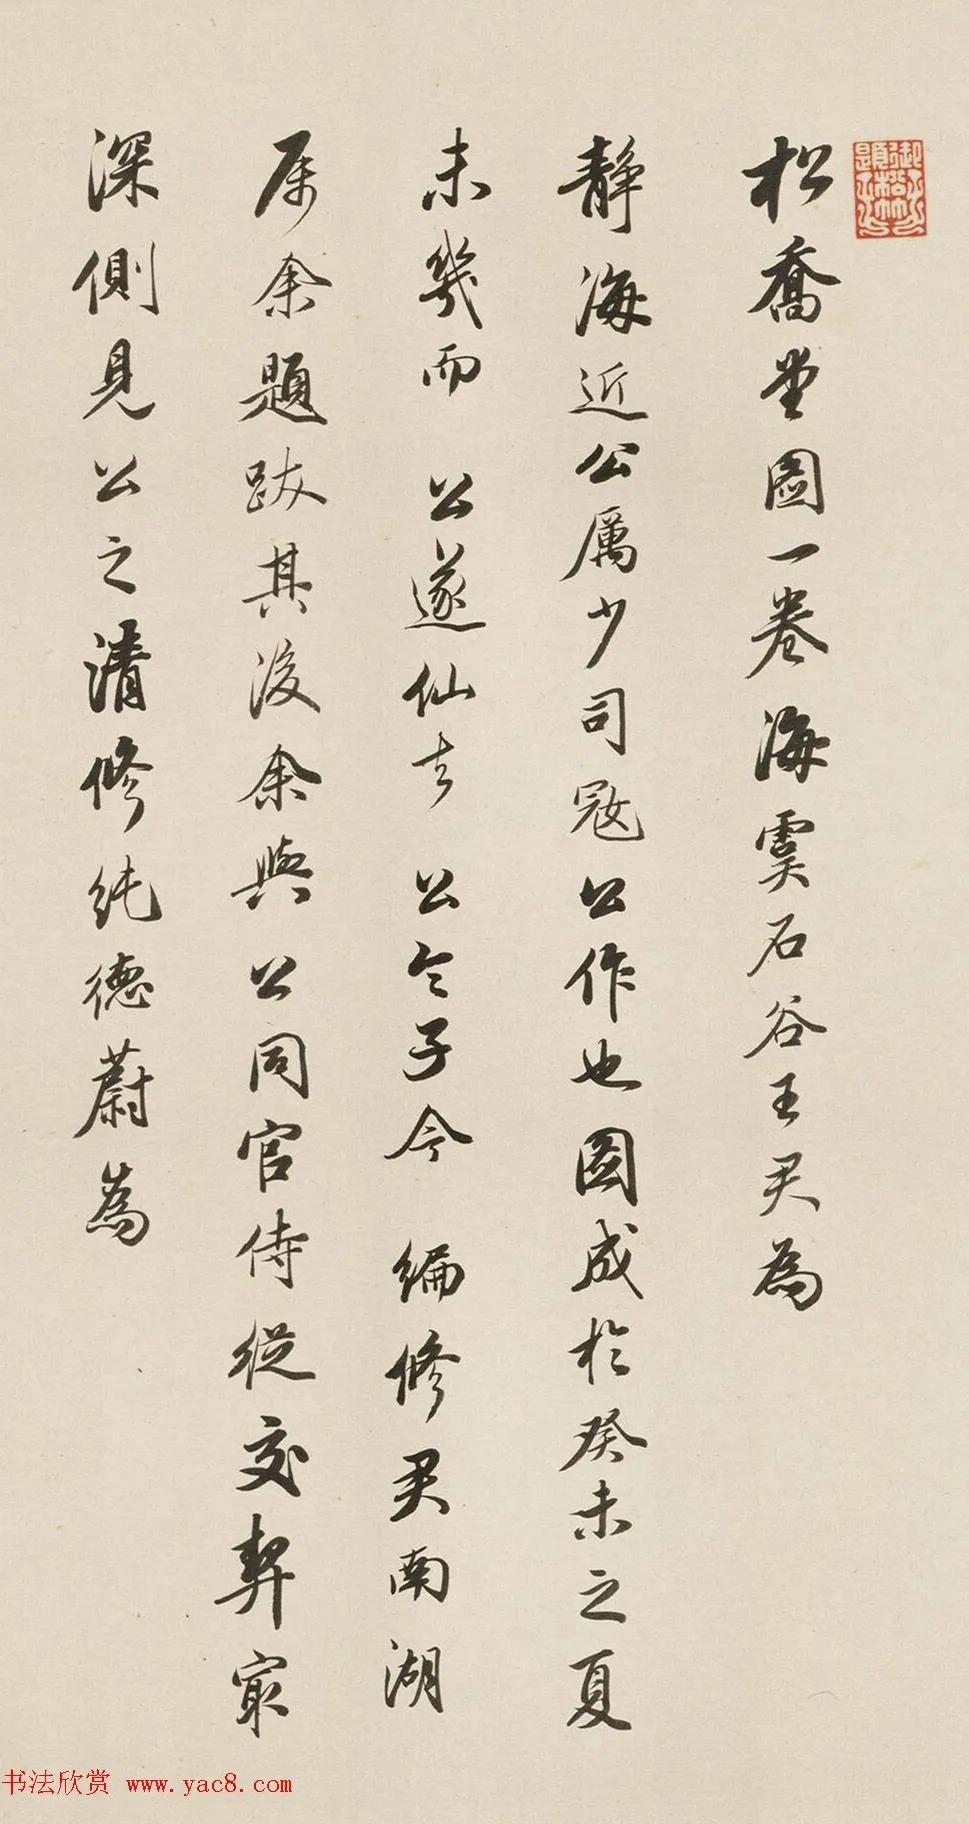 松喬堂圖一卷海虞石谷王君為
靜海近公厲少司寇公作也圖成於癸未之夏
未幾而公遂仙去公令子今編修君南湖
屬余題跋其後余與公同官侍從交契最
深側見公之清修純德蔚為
书法欣赏 www.yac8.com